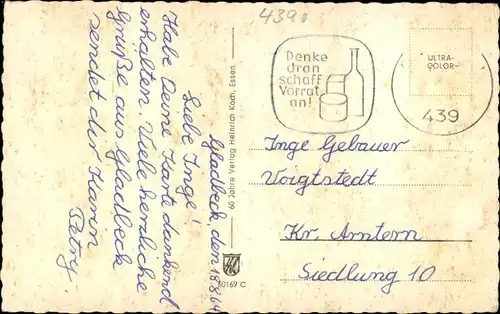 439a
Gladbeck, den 18.8.64
Liebe Inge!
Habe Deine Karte dankend
erhalten. Viele herzliche
Grüße aus Gladbeck
sendet dir Karin
Petry.
60 Jahre Verlag Heinrich Koch, Essen
60169 C
Denke
dran
schaff
Vorrat
an!
ULTRA-
COLOR-
439
Inge Gebauer
Voigtstedt
Kr. Arntern
Siedlung 10